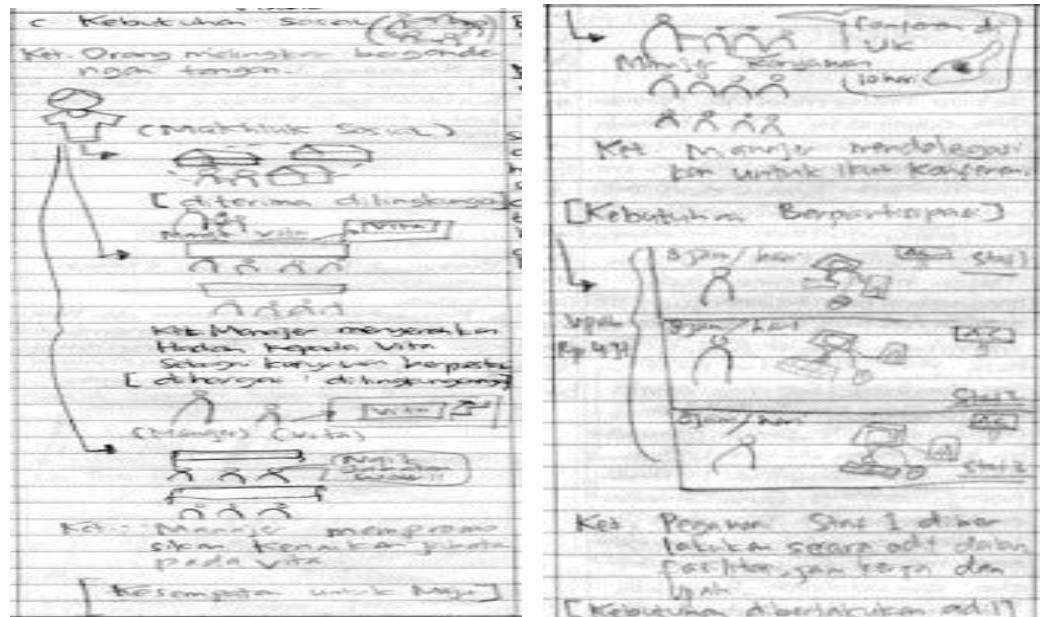 C Kebutuhan sosial
Ket. Orang melingkar bergande
ngan tangan.
(Makhluk Sosial)
[diterima dilingkungan]
Vita
[Vita]
Ket. Manajer menyerahkan
Hadiah kepada Vita
sebagai karyawan berprestasi
[dihargai dilingkungan]
[Vita]
(Manajer) (Vita)
Naik
Ket. Manajer mempromo
sikan kenaikan jabatan
pada Vita
[Kesempatan untuk Maju]
di
UK
Manajer Karyawan
10 hari
Ket. Manajer mendelegasi
kan untuk ikut Konferen.
[Kebutuhan Berpartisipasi]
8 jam/hari AC Staf 1
Upah
8 jam/hari AC
Staf 2
8 jam/hari AC
Ket. Pegawai Staf 1 diber
lakukan secara adil dalam
fasilitas, jam kerja dan
Upah.
[Kebutuhan diberlakukan adil]